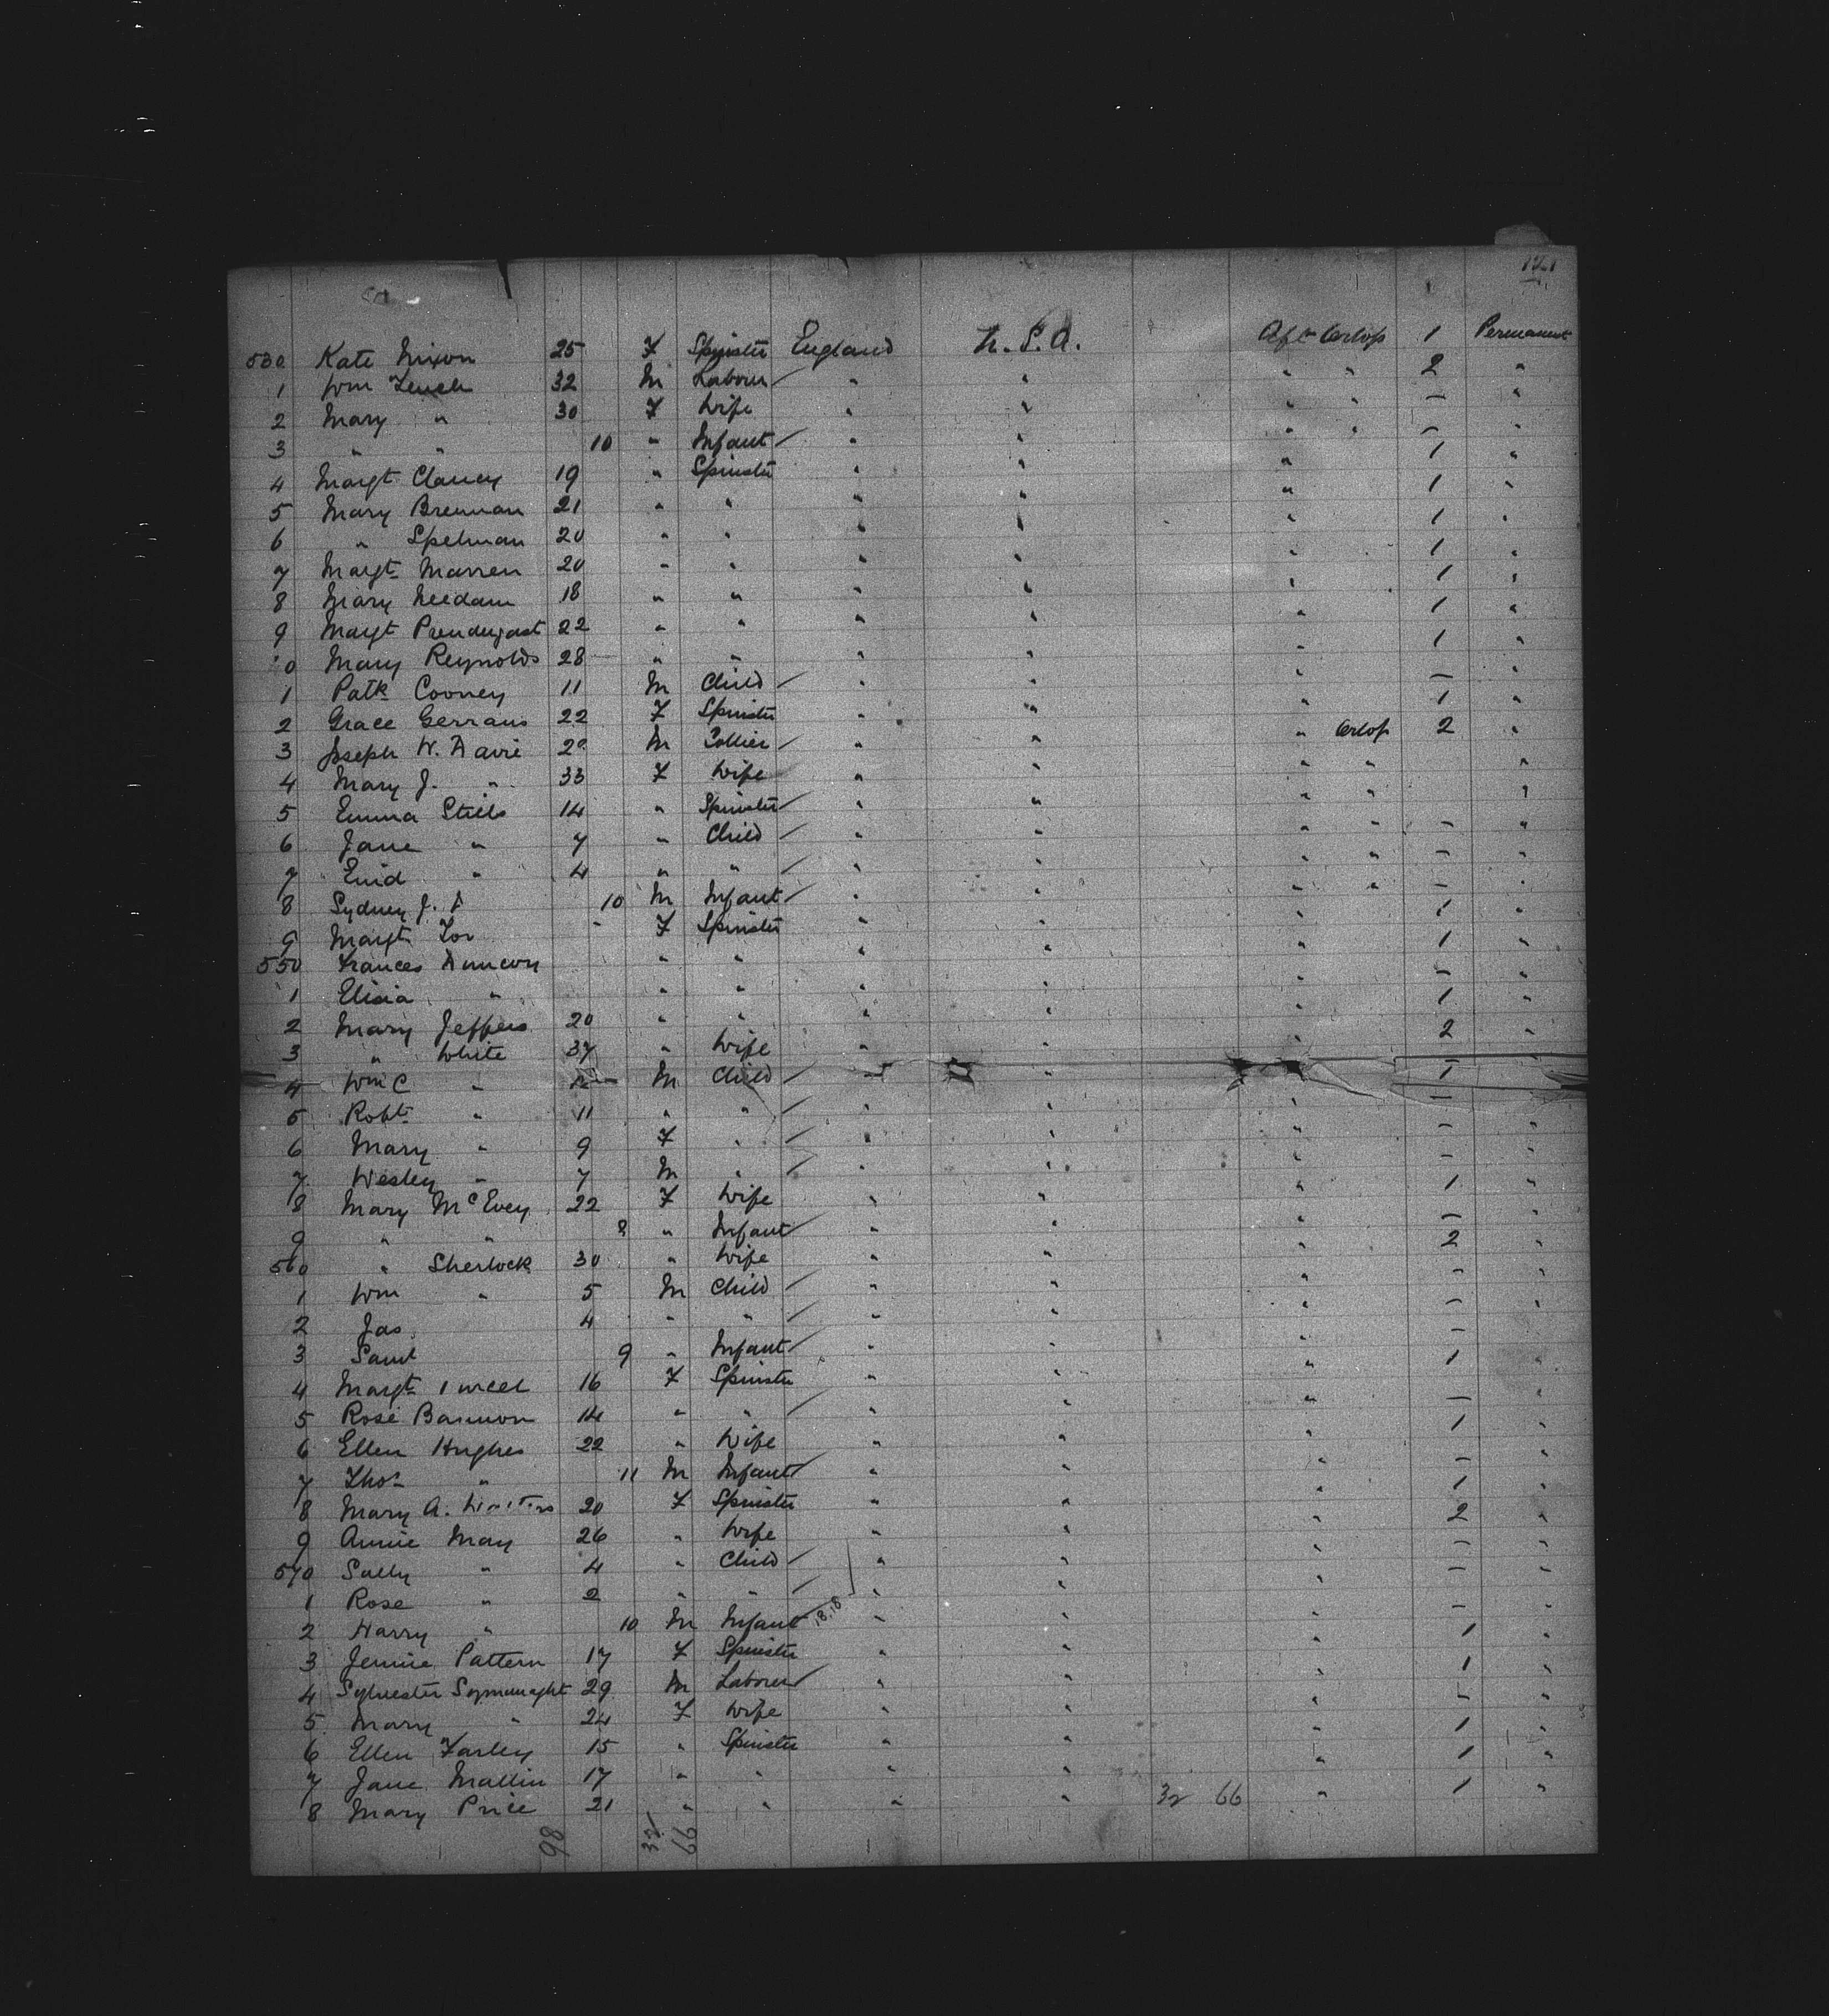 121
530 Kate Nixon 25 F Spinster England U.S.A. Aft Orlop 1 Permanent
1 Wm 32 M Labour " " " " 2 "
2 Mary " 30 F Wife " " " " – "
3 " " 10 " Infant " " " " – "
4 Margt Clancy 19 " Spinster " " " 1 "
5 Mary Brennan 21 " " " " " 1 "
6 " Spelman 20 " " " " " 1 "
7 Margt Marren 20 " " " " " 1 "
8 Mary Needam 18 " " " " " 1 "
9 Margt Prendergast 22 " " " " " 1 "
0 Mary Reynolds 28 " " " " " 1 "
1 Patk Cooney 11 M Child " " " – "
2 Grace Gerrans 22 F Spinster " " " 1 "
3 Joseph W. Davie M Collier " " " Orlop 2 "
4 Mary J. " 33 F Wife " " " " "
5 Emma Stiels 14 " Spinster " " " " "
6 Jane " 7 " Child " " " " – "
7 Enid " 4 " " " " " " – "
8 Sydney J. D 10 M Infant " " " " – "
9 Margt F Spinster " " " 1 "
550 Frances " " " " " 1 "
1 Elisia " " " " " " – "
2 Mary Jeffers 20 " " " " " 1 "
3 " White 37 " Wife " " " 2 "
4 Wm C " M Child " " 1
5 Robt " 11 " " " " " –
6 Mary " 9 F " " " " – "
7 Wesley " 7 M " " " " – "
8 Mary McEvey 22 F Wife " " " 1 "
9 " " 8 " Infant " " " – "
560 " Sherlock 30 " Wife " " " 2 "
1 Wm " 5 M Child " " " – "
2 Jas. 4 " " " " " – "
3 Saml 9 " Infant " " " –
4 Margt 16 F Spinster " " " 1 "
5 Rose Bannon 14 " " " " " – "
6 Ellen Hughes 22 " Wife " " " 1 "
7 Thos " 11 M Infant " " " – "
8 Mary A. 20 F Spinster " " " 1 "
9 Annie May 26 " Wife " " " 2 "
570 Sally " 4 " Child " " " – "
1 Rose " 2 " " " " " – "
2 Harry " 10 M Infant 18,18 " " " – "
3 Jennie Pattern 17 F Spinster " " " 1 "
4 Sylvester 29 M Labourer " " " 1 "
5 Mary " 24 F Wife " " " – "
6 Ellen Farley 15 " Spinster " " " 1 "
7 Jane Mallin 17 " " " " " 1 "
8 Mary Price 21 " " " " 32 66 " 1 "
98 32 66